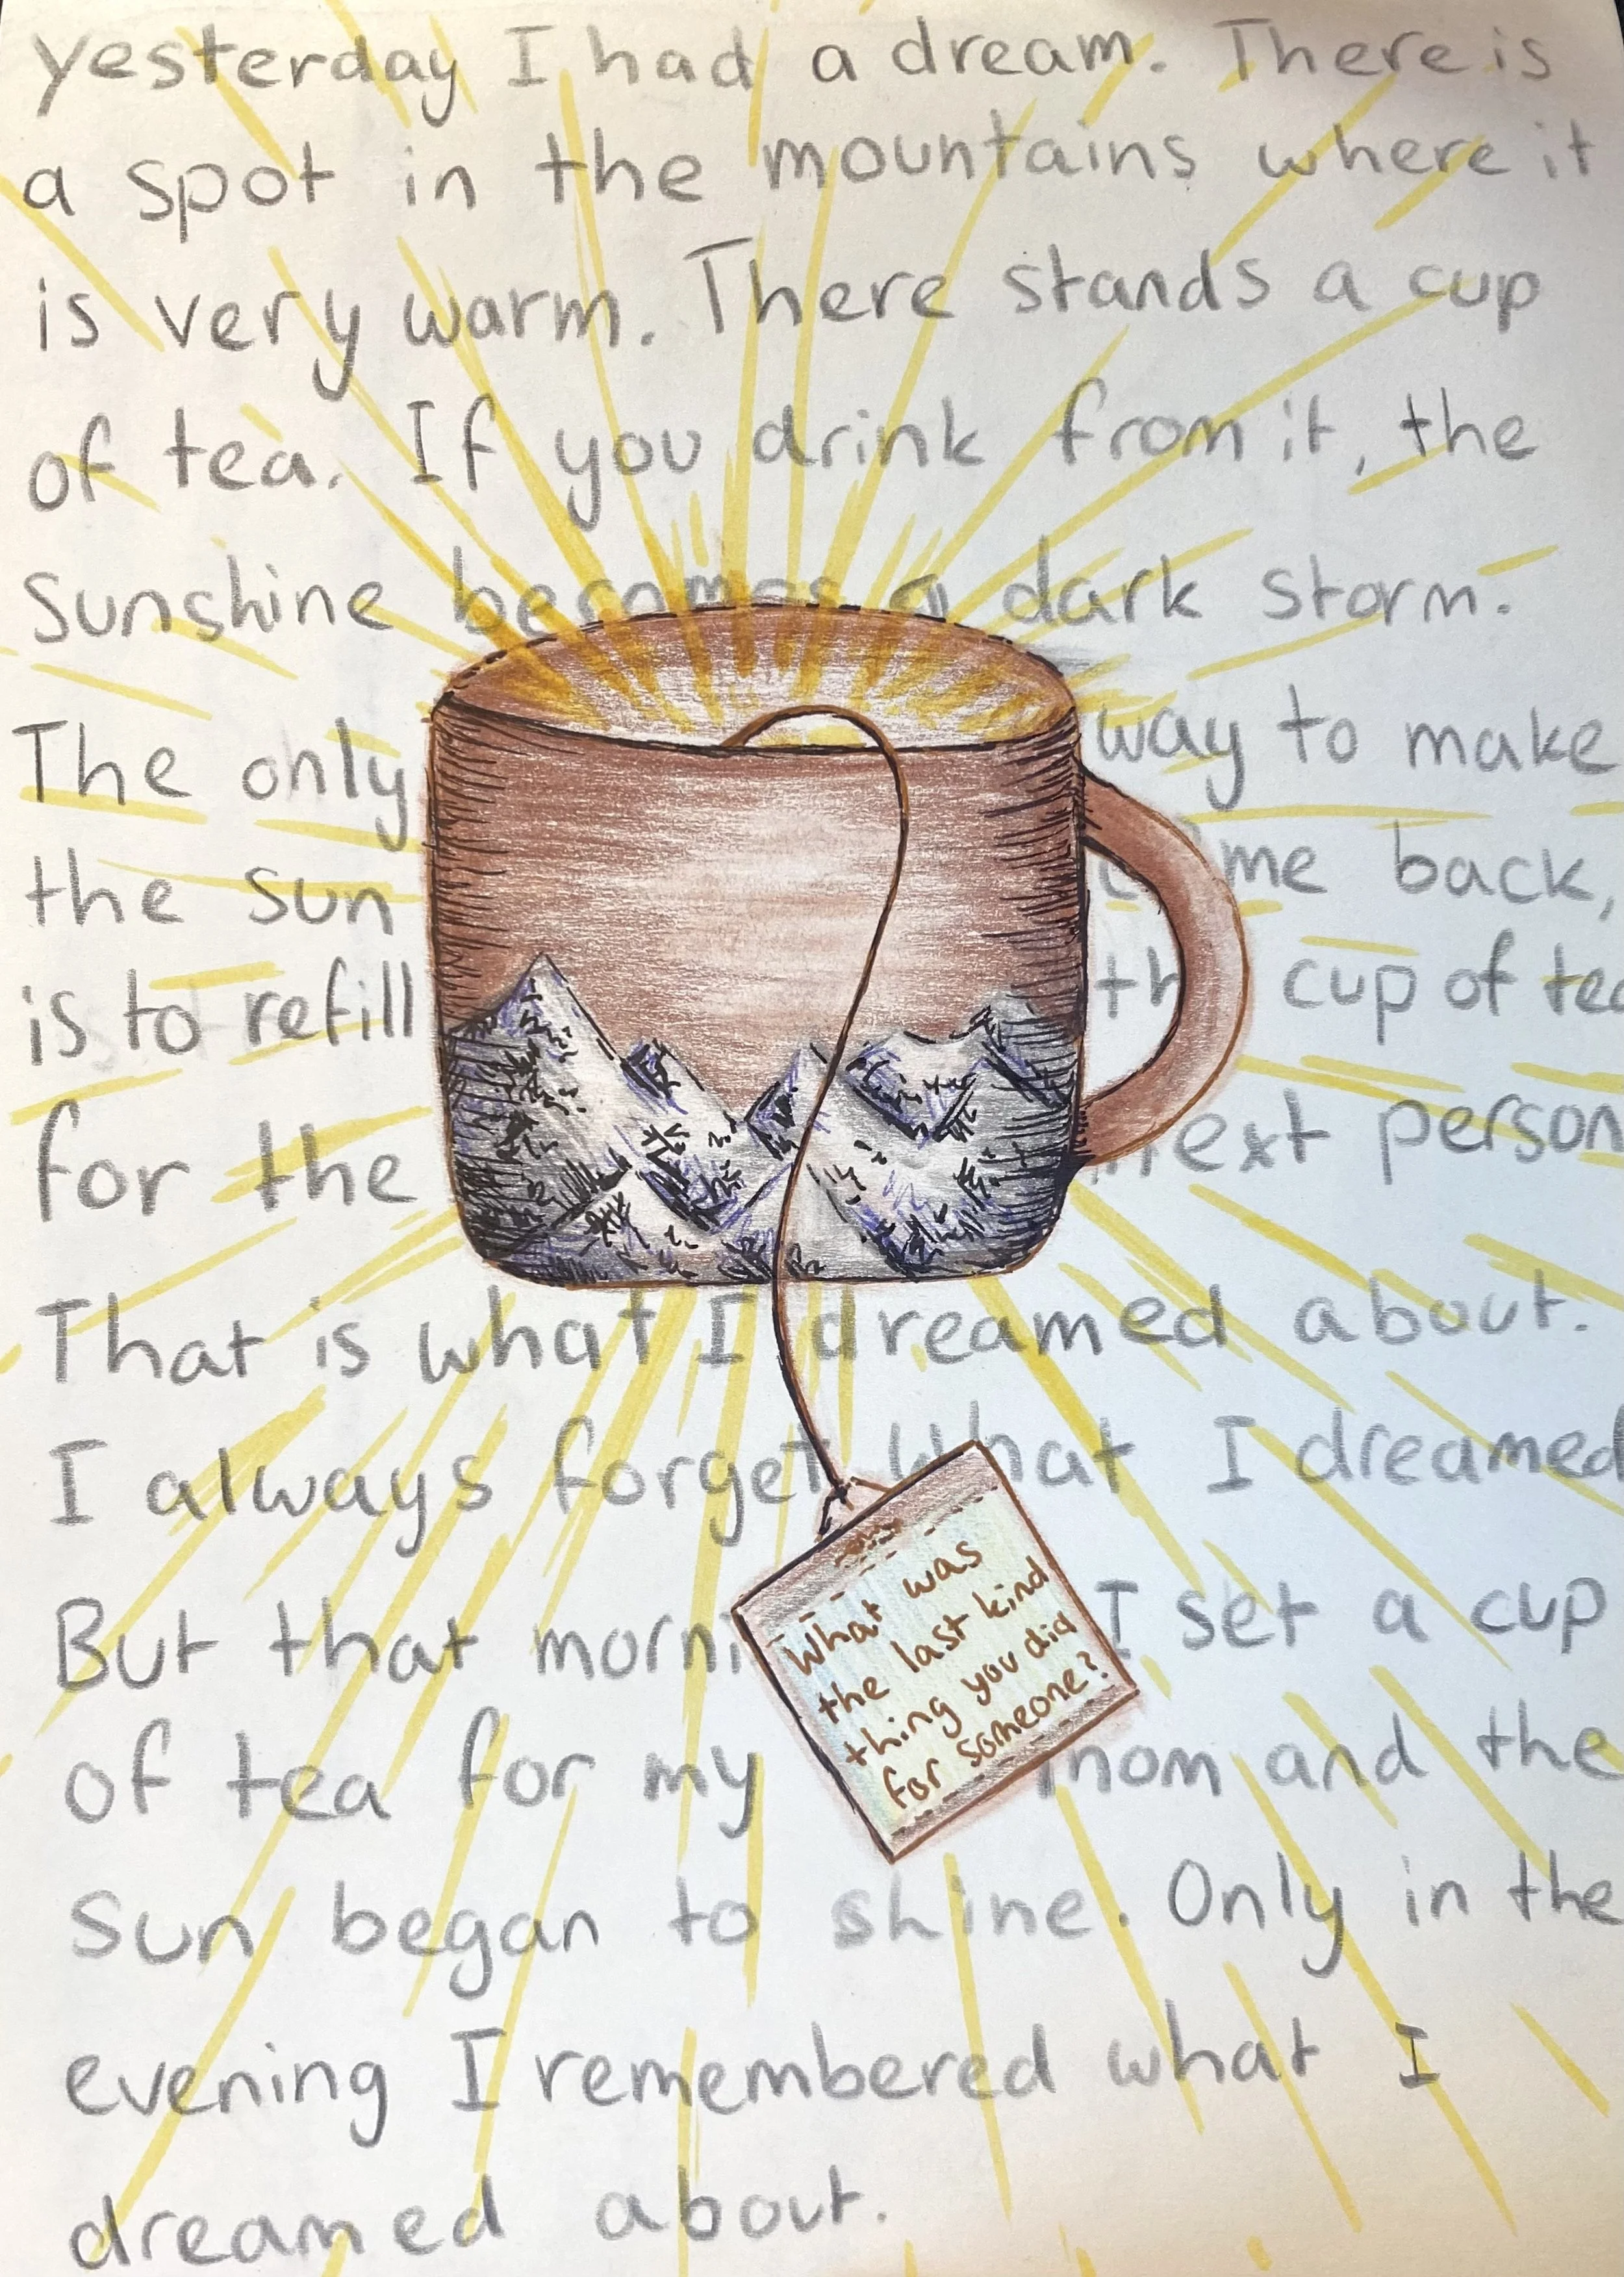 yesterday I had a dream. There is
a spot in the mountains where it
is very warm. There stands a cup
of tea. If you drink from it, the
Sunshine becomes a dark storm.
The only way to make
the sun come back,
is to refill the cup of tea
for the next person
That is what I dreamed about.
I always forget what I dreamed
But that morning I set a cup
of tea for my mom and the
Sun began to shine. Only in the
evening I remembered what I
dreamed about.
What was
the last kind
thing you did
for someone?